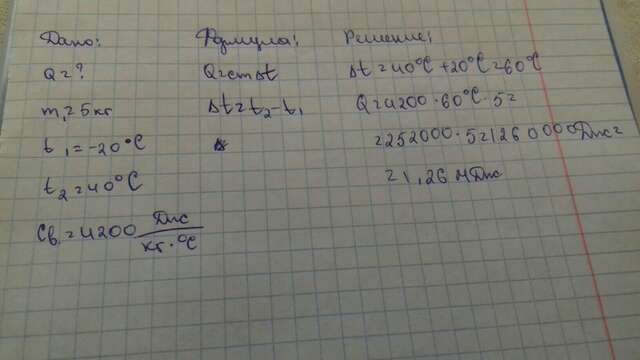 Дано:
Q = ?
m, = 5 кг
t₁ = -20°C
t₂ = 40°C
Cв. = 4200 Дж
кг · °C
Формула:
Q = cmΔt
Δt = t₂ - t₁
Решение:
Δt = 40°C + 20°C = 60°C
Q = 4200 · 60°C · 5 =
= 252000 · 5 = 1260000 Дж =
= 1,26 МДж